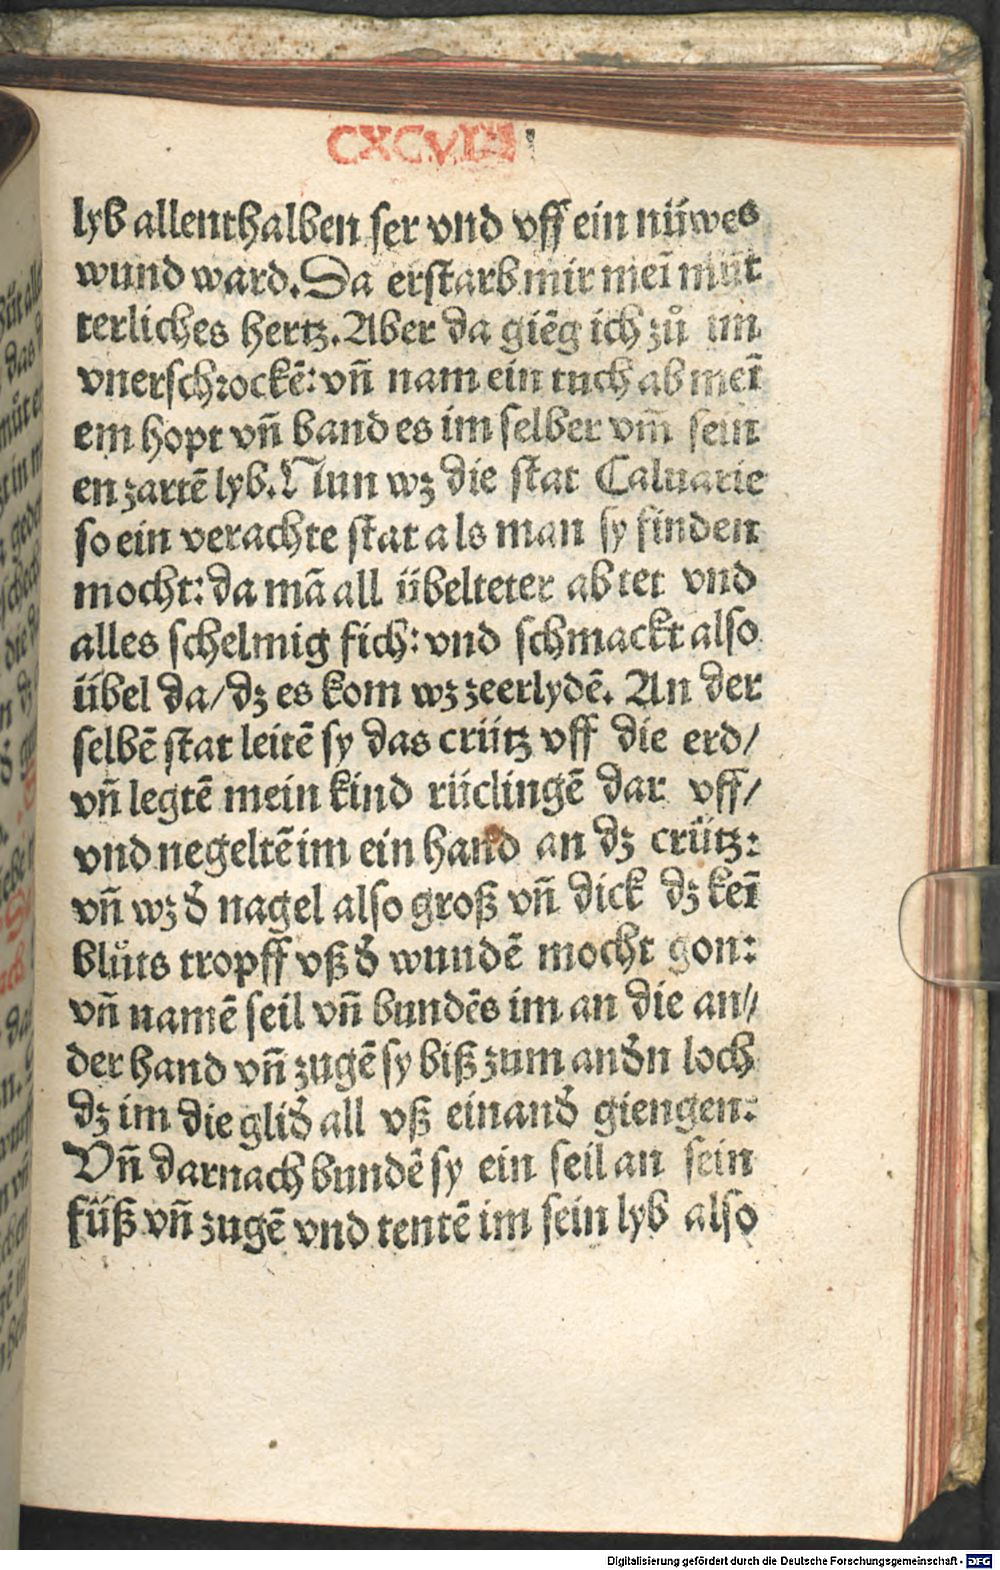 lyb allenthalben ser vnd vff ein nüwes
wund ward. Da erstarb mir meī můt
terliches hertz. Aber da giēg ich zů im
vnerschrockē: vñ nam ein tuch ab meī
em hopt vñ band es im selber vm̄ sein
en zartē lyb. Nun wz die stat Caluarie
so ein verachte stat als man sy finden
mocht: da mā all übelteter ab tet vnd
alles schelmig fich: vnd schmackt also
übel da/ dz es kom wz zeerlydē. An der
selbē stat leitē sy das crütz vff die erd/
vñ legtē mein kind rüclingē dar vff/
vnd negeltē im ein hand an dz crütz:
vñ wz d̄ nagel also groß vñ dick dz keī
blůts tropff vß d̄ wundē mocht gon:
vñ namē seil vñ bundēs im an die an//
der hand vñ zugē sy biß zum and̄n loch
dz im die glid̄ all vß einand̄ giengen:
Vñ darnach bundē sy ein seil an sein
füß vñ zugē vnd tentē im sein lyb also
Digitalisierung gefördert durch die Deutsche Forschungsgemeinschaft - DFG